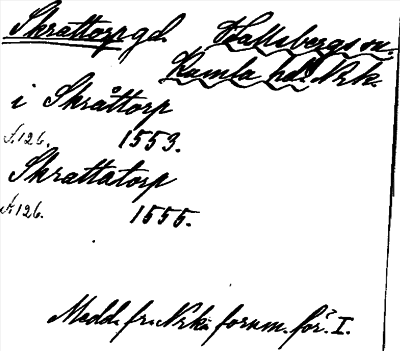 Skrattorp gd. Hallsbergs sn.
Kumla hd. Nrk.
i Skråttorp
s. 126. 1553.
Skrattatorp
s. 126. 1555.
Medd. fr. Nrks fornm. för. I.